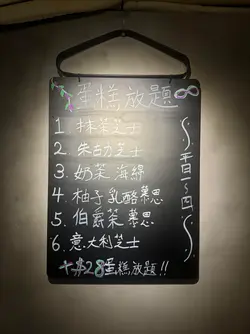 蛋糕放題
1. 抹茶芝士
2. 朱古力芝士
3. 奶茶海綿
4. 柚子乳酪慕思
5. 伯爵茶慕思
6. 意大利芝士
+$28蛋糕放題!!
星期一~四